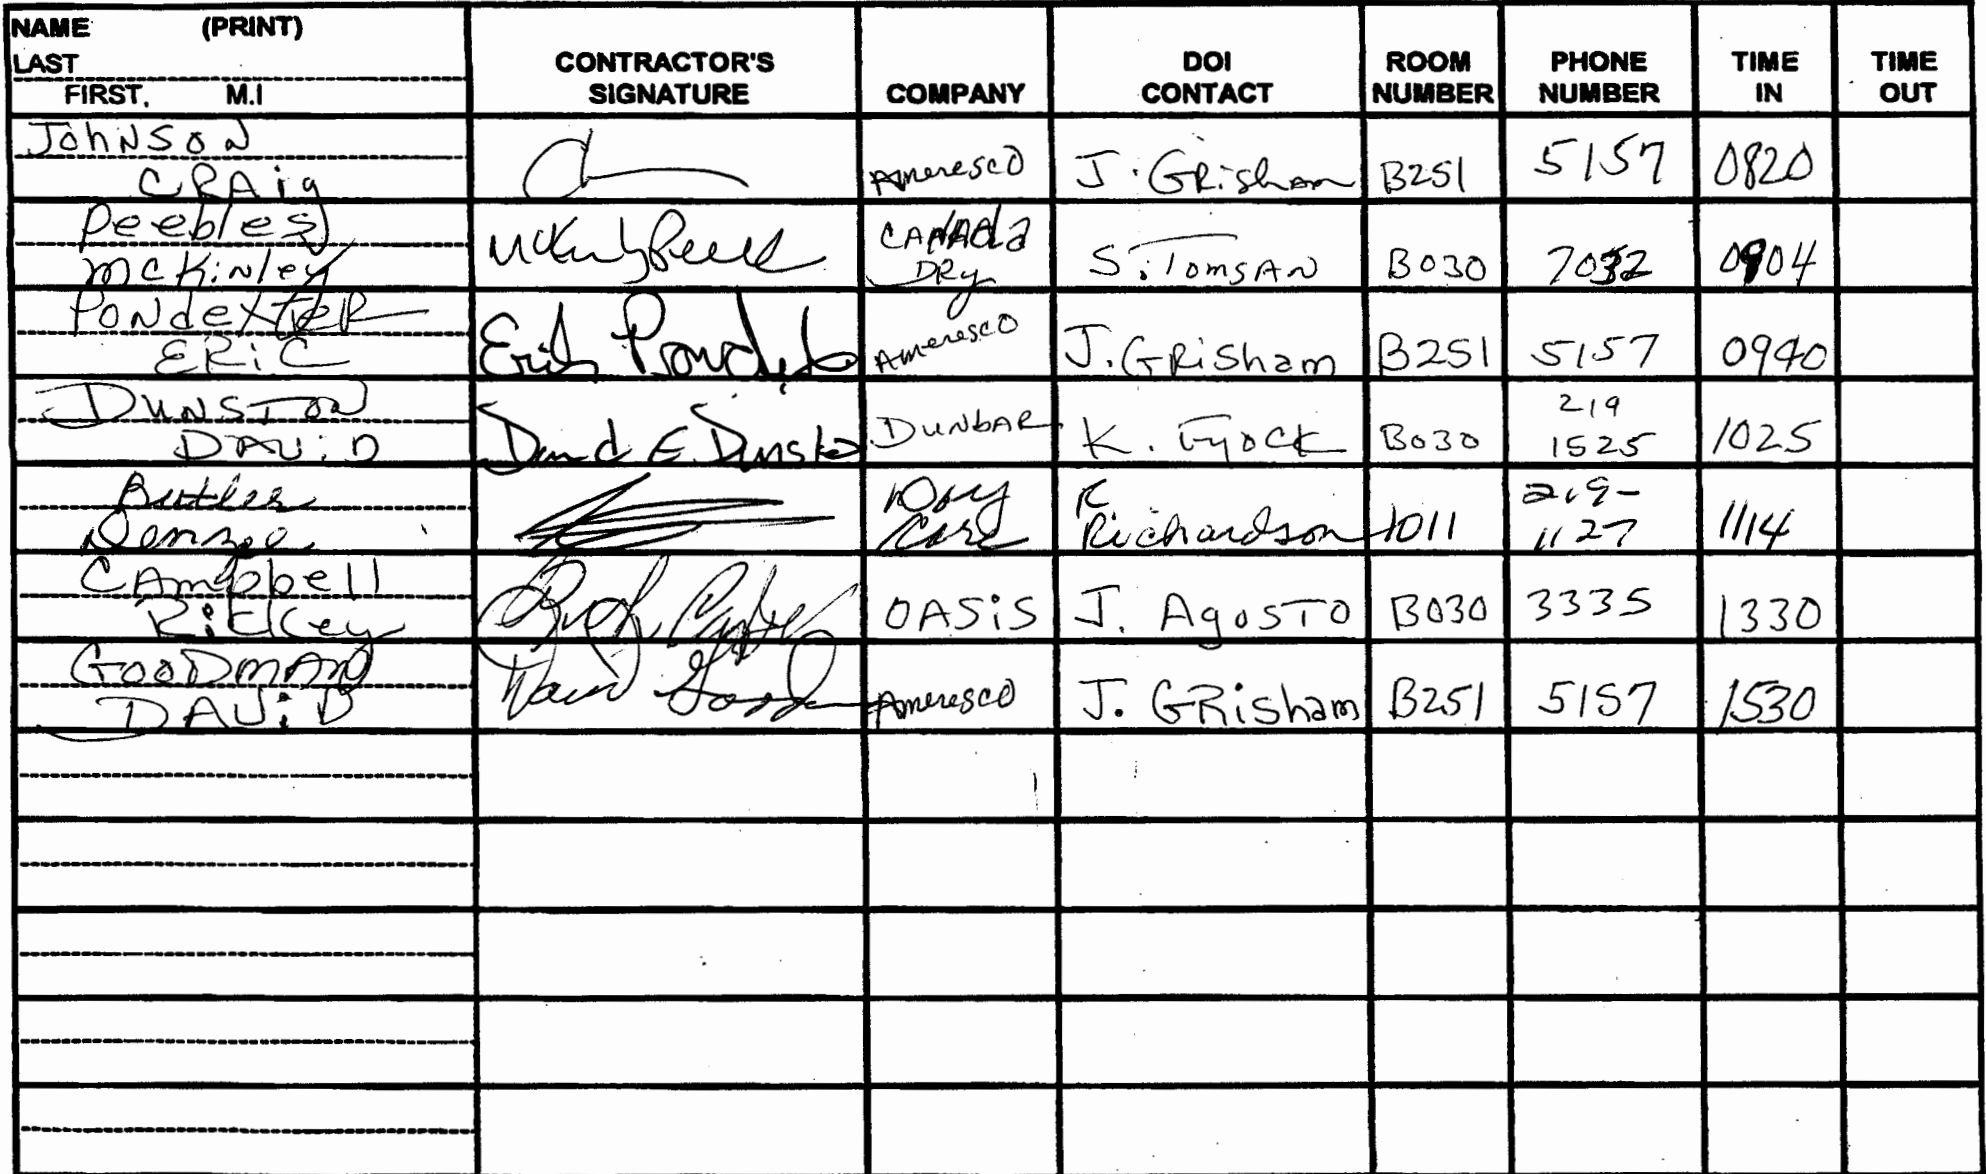 NAME (PRINT)
LAST
FIRST, M.I
CONTRACTOR'S
SIGNATURE
COMPANY
DOI
CONTACT
ROOM
NUMBER
PHONE
NUMBER
TIME
IN
TIME
OUT
JohNSoN
CRAig
Ameresco
J. GRisham
B251
5157
0820
Peebles
McKinley
CANADA
DRy
S. TomsAN
B030
7032
0904
PoNdeXTER
ERiC
Eric
Ameresco
J. GRisham
B251
5157
0940
DUNSTON
DAViD
David E. Dunston
DUNBAR
K. Fyock
B030
219
1525
1025
Butler
Day
Care
R
Richardson
1011
219-
1127
1114
CAmpbell
Rickey
OASiS
J. AgosTo
B030
3335
1330
GOODMAN
DAViD
David
Ameresco
J. GRisham
B251
5157
1530